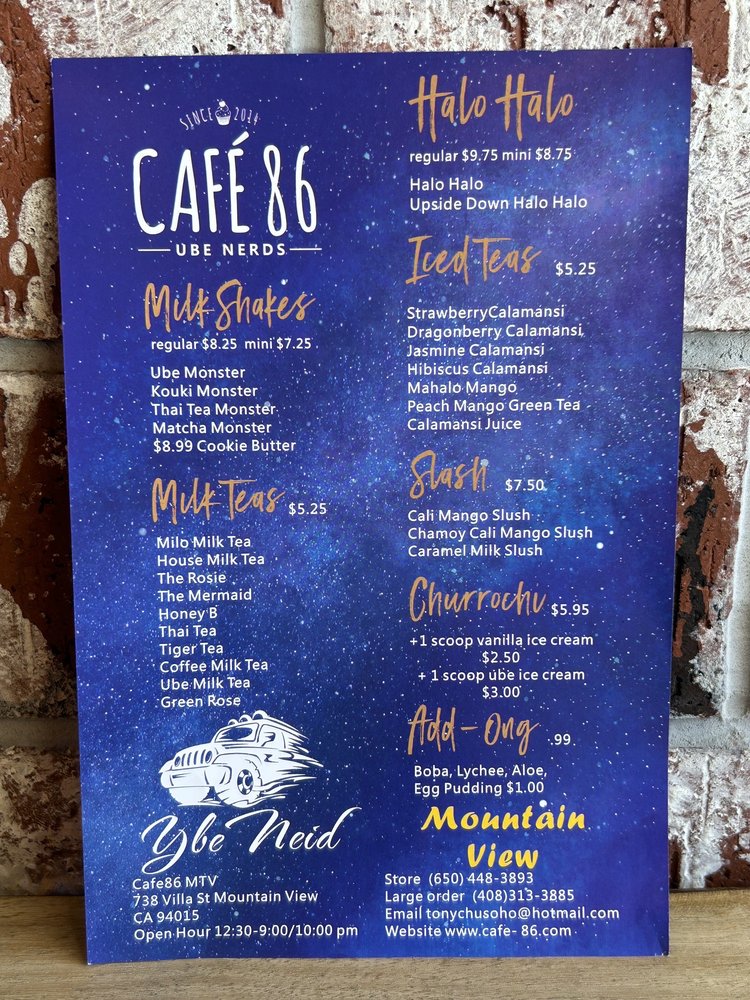 SINCE 2014
CAFÉ 86
UBE NERDS
Milk Shakes
regular $8.25 mini $7.25
Ube Monster
Kouki Monster
Thai Tea Monster
Matcha Monster
$8.99 Cookie Butter
Milk Teas $5.25
Milo Milk Tea
House Milk Tea
The Rosie
The Mermaid
Honey B
Thai Tea
Tiger Tea
Coffee Milk Tea
Ube Milk Tea
Green Rose
Ybe Neid
Cafe86 MTV
738 Villa St Mountain View
CA 94015
Open Hour 12:30-9:00/10:00 pm
Halo Halo
regular $9.75 mini $8.75
Halo Halo
Upside Down Halo Halo
Iced Teas $5.25
StrawberryCalamansi
Dragonberry Calamansi
Jasmine Calamansi
Hibiscus Calamansi
Mahalo Mango
Peach Mango Green Tea
Calamansi Juice
Slash $7.50
Cali Mango Slush
Chamoy Cali Mango Slush
Caramel Milk Slush
Churrochi $5.95
+1 scoop vanilla ice cream
$2.50
+ 1 scoop ube ice cream
$3.00
Add-Ong .99
Boba, Lychee, Aloe,
Egg Pudding $1.00
Mountain
View
Store (650) 448-3893
Large order (408)313-3885
Email tonychusoho@hotmail.com
Website www.cafe- 86.com